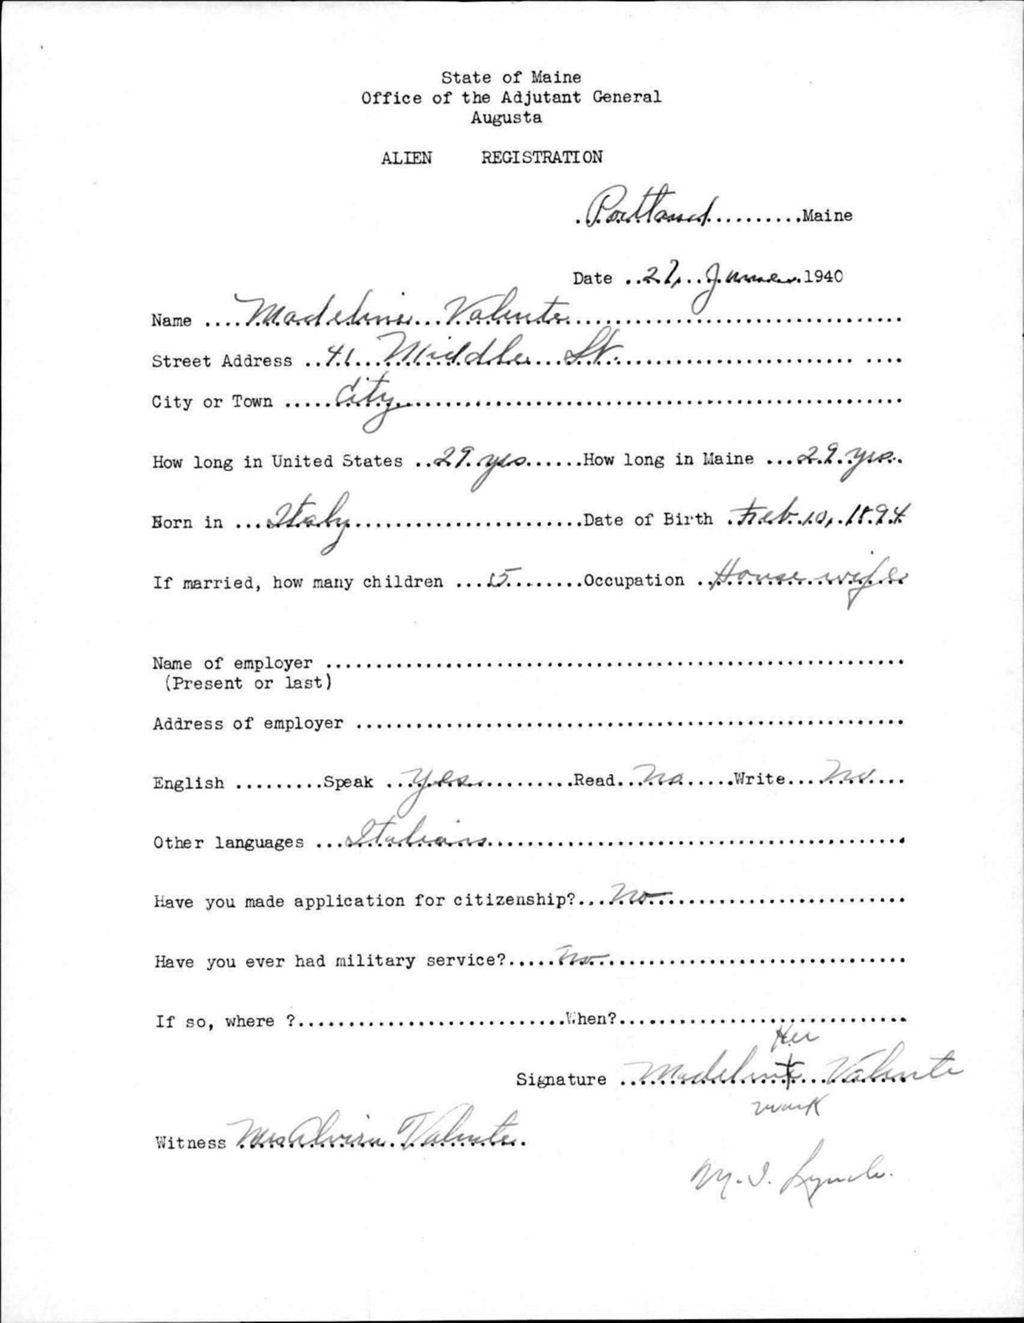 State of Maine
Office of the Adjutant General
Augusta
ALIEN REGISTRATION
Portland Maine
Date 27, June 1940
Name Madeline Valente
Street Address 41 Middle St.
City or Town City
How long in United States 29 yrs How long in Maine 29 yrs.
Born in Italy Date of Birth Feb. 10, 1894
If married, how many children 5 Occupation House wife
Name of employer
(Present or last)
Address of employer
English Speak Yes Read No Write No
Other languages Italian
Have you made application for citizenship? No
Have you ever had military service? No
If so, where ? When?
Her
Signature Madeline Valente
mark
Witness Mrs Valente
M. I. Lynch.